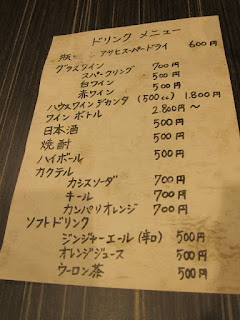 ドリンク メニュー
瓶ビール アサヒスーパードライ 600円
グラスワイン 700円
スパークリング 500円
白ワイン 500円
赤ワイン
ハウスワインデカンタ (500cc) 1.800円
ワイン ボトル 2.800円〜
日本酒 500円
焼酎 500円
ハイボール 500円
カクテル
カシスソーダ 700円
キール 700円
カンパリオレンジ 700円
ソフトドリンク
ジンジャーエール(辛口) 500円
オレンジジュース 500円
ウーロン茶 500円